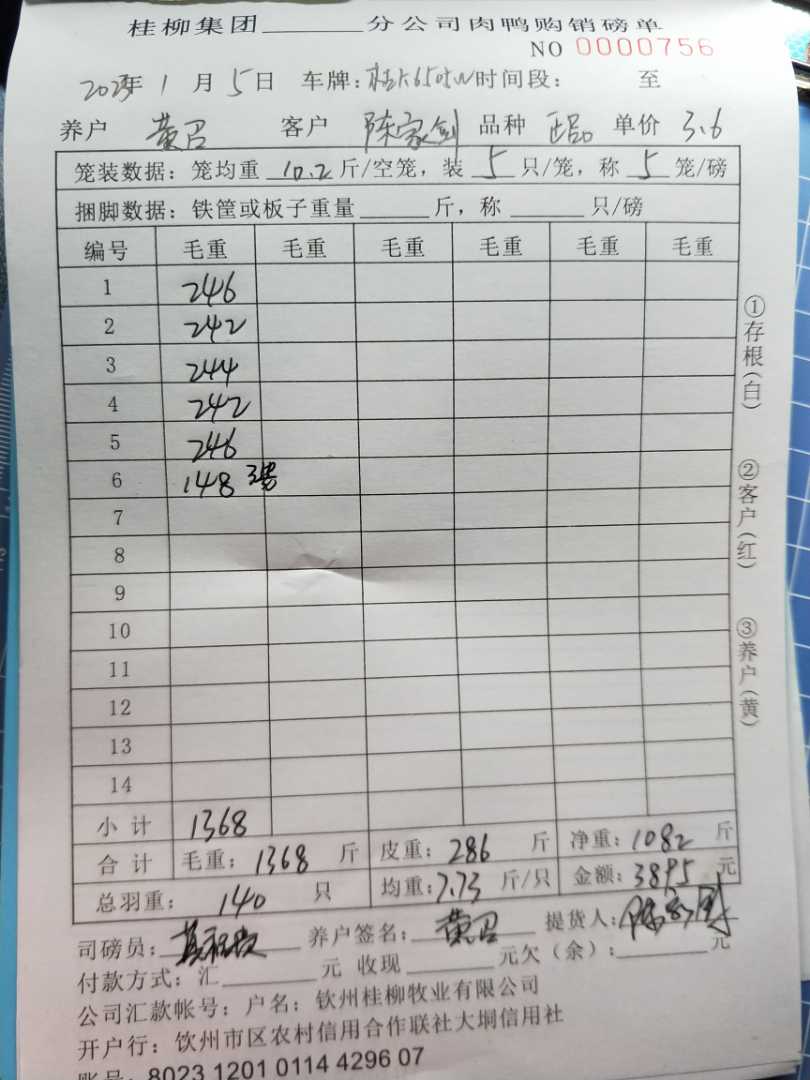 桂柳集团______分公司肉鸭购销磅单
NO 0000756
2023年 1 月 5 日 车牌: 时间段: 至
养户 黄召 客户 陈家剑 品种 正品 单价 3.6
笼装数据: 笼均重 10.2 斤/空笼, 装 5 只/笼, 称 5 笼/磅
捆脚数据: 铁筐或板子重量______斤, 称______只/磅
编号 毛重 毛重 毛重 毛重 毛重 毛重
1 246
2 242
3 244
4 242
5 246
6 148 3笼
7
8
9
10
11
12
13
14
小计 1368
合计 毛重: 1368 斤 皮重: 286 斤 净重: 1082 斤
总羽重: 140 只 均重: 7.73 斤/只 金额: 3895 元
司磅员: 养户签名: 黄召 提货人:
付款方式: 汇______元 收现______元欠(余):______元
公司汇款帐号: 户名: 钦州桂柳牧业有限公司
开户行: 钦州市区农村信用合作联社大垌信用社
账号: 8023 1201 0114 4296 07
①存根(白)
②客户(红)
③养户(黄)